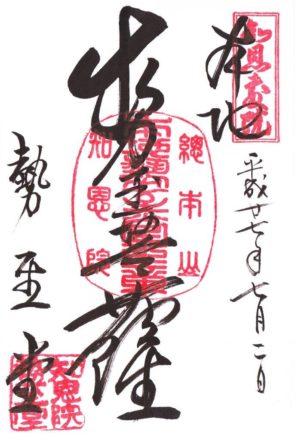 平成廿七年七月二日
本地
勢至菩薩
總本山
知恩院
勢至堂
知恩院
勢至堂